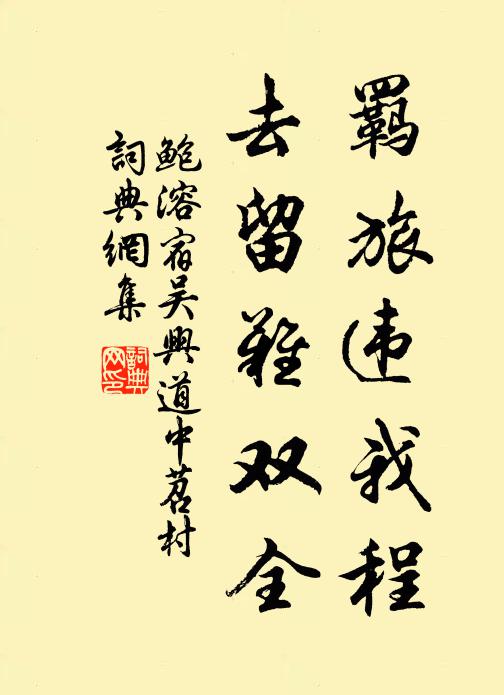 羁旅违我程
去留难双全
鲍溶宿吴兴道中苕村
詞典網集
詞典網印